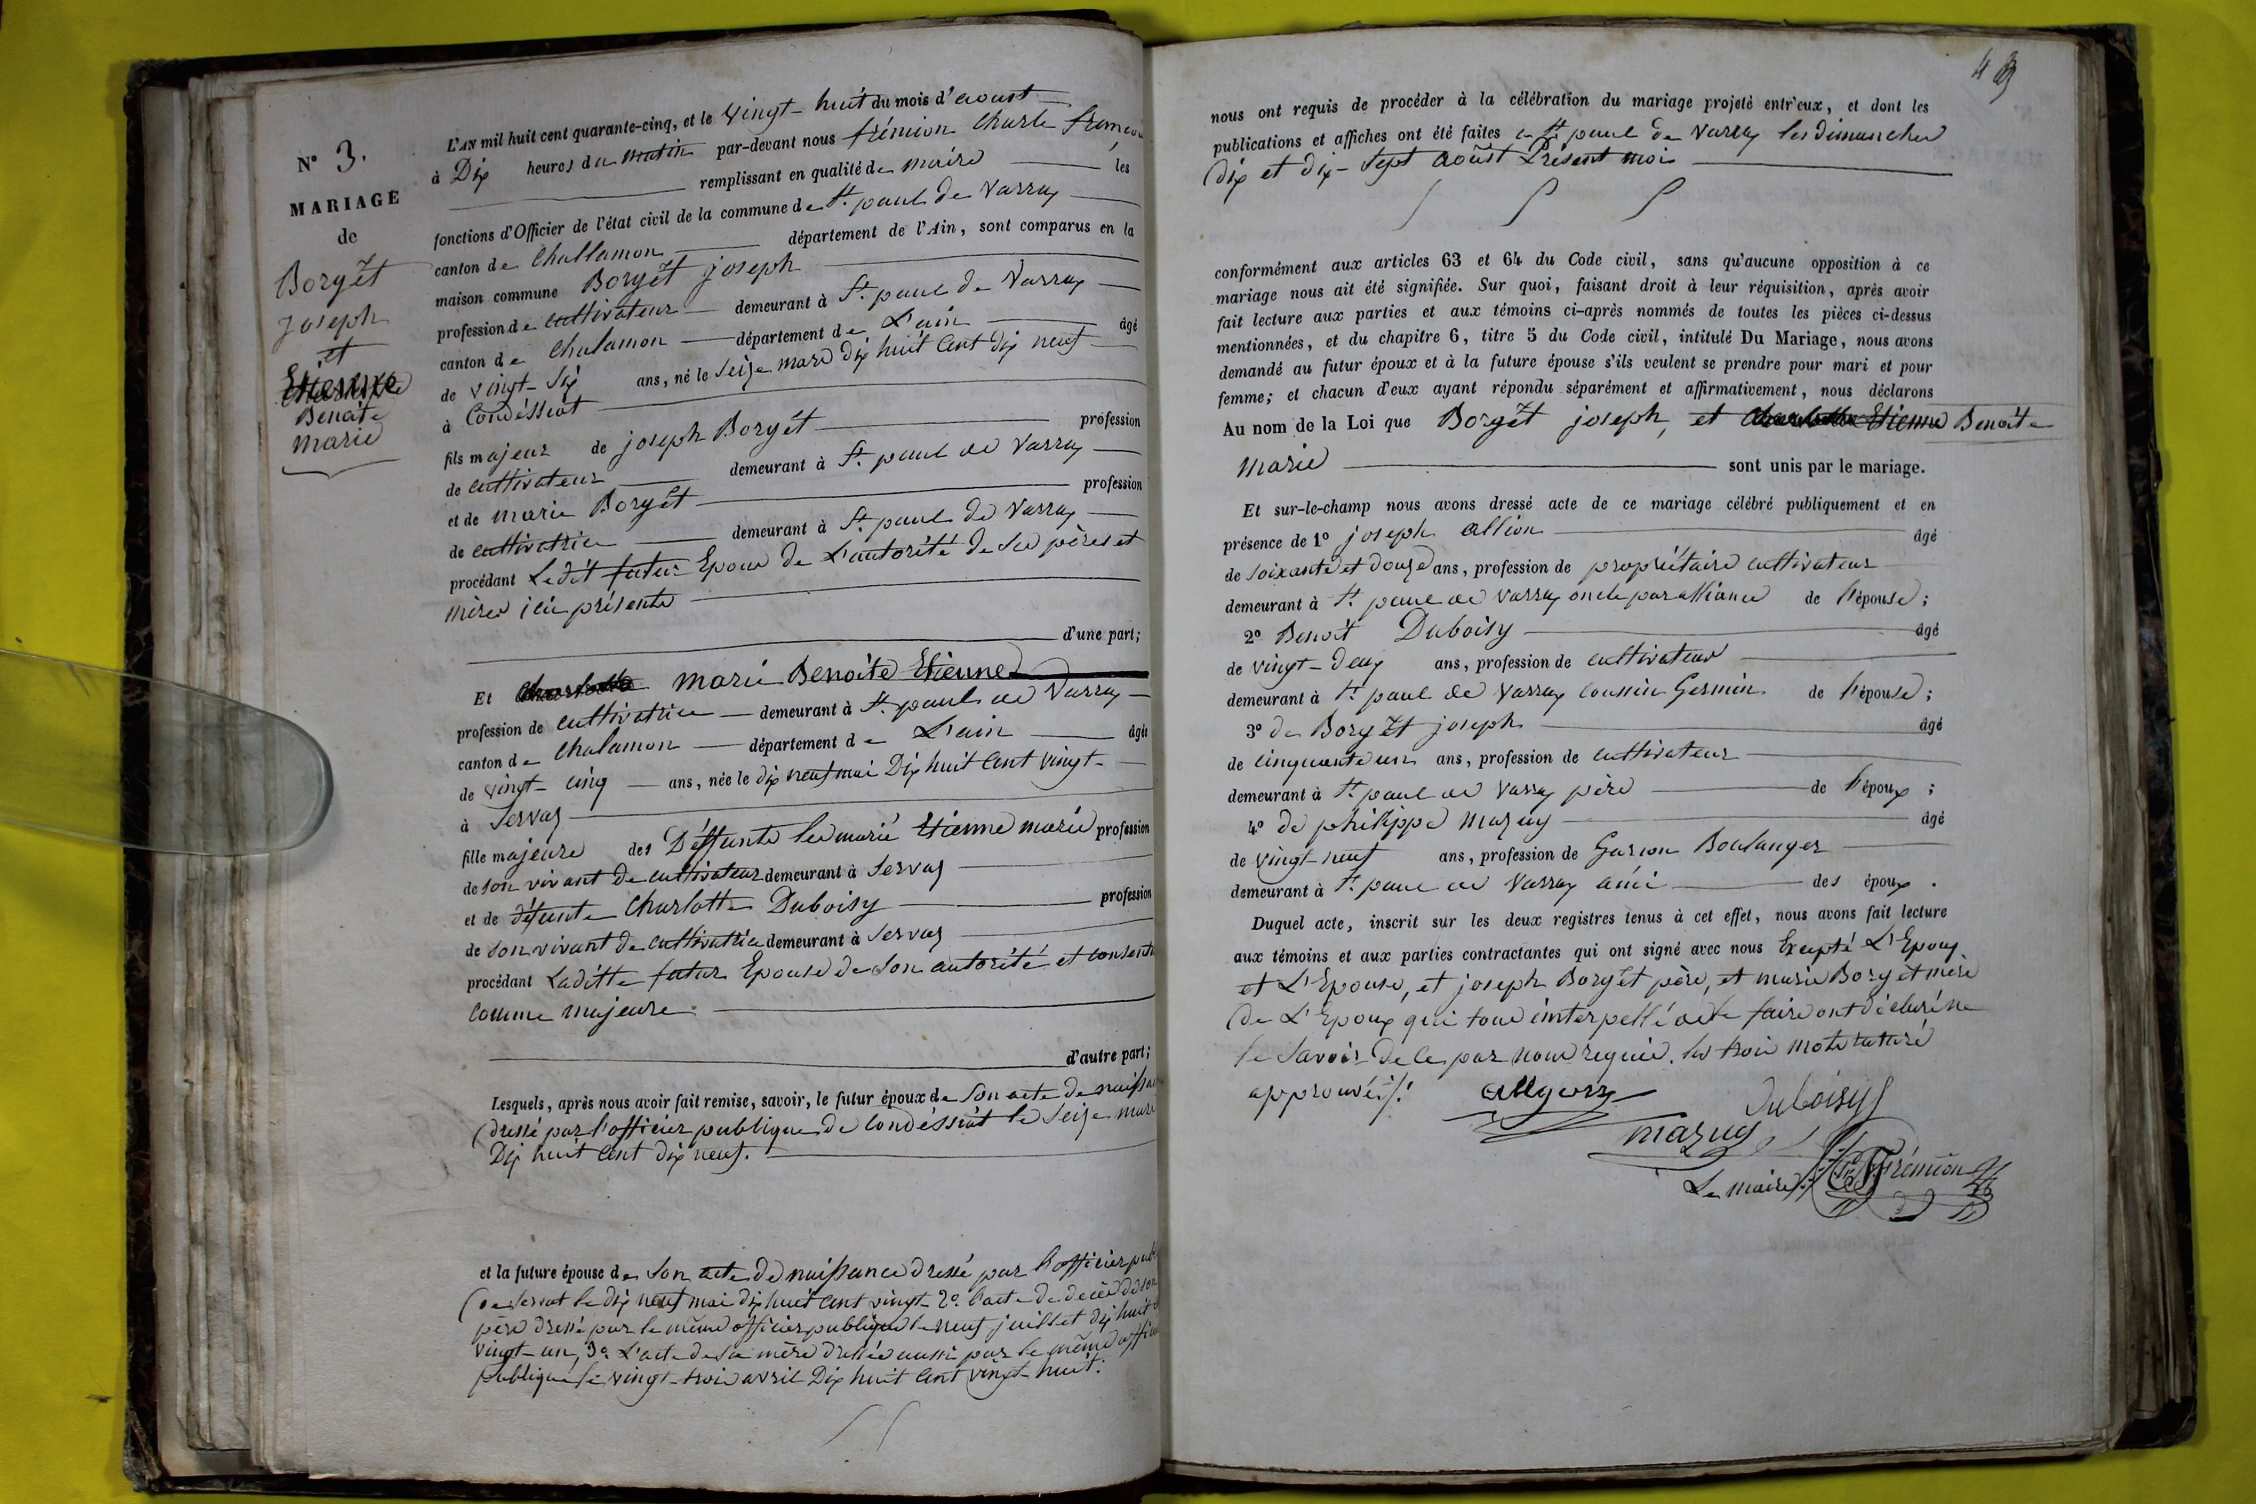 N° 3.
MARIAGE
de
Borgët
Joseph
et
Etienne
Benoite
marie
L'AN mil huit cent quarante-cinq, et le vingt-huit du mois d'aoust
à Dix heures du matin par-devant nous frémion Charle
remplissant en qualité de maire les
fonctions d'Officier de l'état civil de la commune de St. paul de Varrax
canton de Challamon département de l'Ain, sont comparus en la
maison commune Borgët joseph
profession de cultivateur demeurant à St. paul de Varrax
canton de Chalamon département de L'ain âgé
de vingt-six ans, né le seize mars dix huit cent dix neuf
à Condéssiat
fils majeur de joseph Borgët profession
de cultivateur demeurant à St. paul de Varrax
et de marie Borgët profession
de cultivatrice demeurant à St. paul de Varrax
procédant Ledit futur Epoux de L'autorité de ses pères et
mères ici présents
d'une part;
Et marie Benoite Etienne
profession de cultivatrice demeurant à St. paul de Varrax
canton de Chalamon département de L'ain âgée
de vingt-cinq ans, née le dix neuf mai Dix huit Cent vingt
à Servas
fille majeure des Déffunts les marié Etienne marie profession
de son vivant de cultivateur demeurant à Servas
et de défunte Charlotte Duboisy profession
de son vivant de cultivatrice demeurant à Servas
procédant Laditte futur Epouse de son autorité et
comme majeure.
d'autre part;
Lesquels, après nous avoir fait remise, savoir, le futur époux de son acte de
dressé par l'officier publique de Condéssiat le seize mars
Dix huit Cent dix neuf.
et la future épouse de son acte de naissance dressé par l'officier
de Servat le dix neuf mai dix huit cent vingt 2° l'acte de décès de son
père dressé par le même officier publique le neuf juillet dix huit
vingt-un, 3° L'acte de sa mère dressée aussi par le même
publique le vingt-trois avril Dix huit Cent vingt-huit.
43
nous ont requis de procéder à la célébration du mariage projeté entr'eux, et dont les
publications et affiches ont été faites à St. paul de Varrax les dimanches
dix et dix-sept août Présent mois
conformément aux articles 63 et 64 du Code civil, sans qu'aucune opposition à ce
mariage nous ait été signifiée. Sur quoi, faisant droit à leur réquisition, après avoir
fait lecture aux parties et aux témoins ci-après nommés de toutes les pièces ci-dessus
mentionnées, et du chapitre 6, titre 5 du Code civil, intitulé Du Mariage, nous avons
demandé au futur époux et à la future épouse s'ils veulent se prendre pour mari et pour
femme; et chacun d'eux ayant répondu séparément et affirmativement, nous déclarons
Au nom de la Loi que Borgët joseph, et Etienne Benoite
marie sont unis par le mariage.
Et sur-le-champ nous avons dressé acte de ce mariage célébré publiquement et en
présence de 1° joseph allion âgé
de soixante et douze ans, profession de propriétaire cultivateur
demeurant à St. paul de Varrax oncle par alliance de l'épouse;
2° Benoit Duboisy âgé
de vingt-deux ans, profession de cultivateur
demeurant à St. paul de Varrax coussin Germin de l'épouse;
3° de Borgët joseph âgé
de cinquante un ans, profession de cultivateur
demeurant à St. paul de Varrax père de l'époux;
4° de philippe mazuy âgé
de vingt neuf ans, profession de Garçon Boulanger
demeurant à St. paul de Varrax ami des époux.
Duquel acte, inscrit sur les deux registres tenus à cet effet, nous avons fait lecture
aux témoins et aux parties contractantes qui ont signé avec nous Excepté L'Epoux
et L'Epouse, et joseph Borgët père, et marie Borgët mère
de L'Epoux qui tous interpellé de le faire ont déclaré ne
le savoir de ce par nous requis. les trois mots raturé
approuvés/.
Duboisy
mazuy
Le maire
Frémion